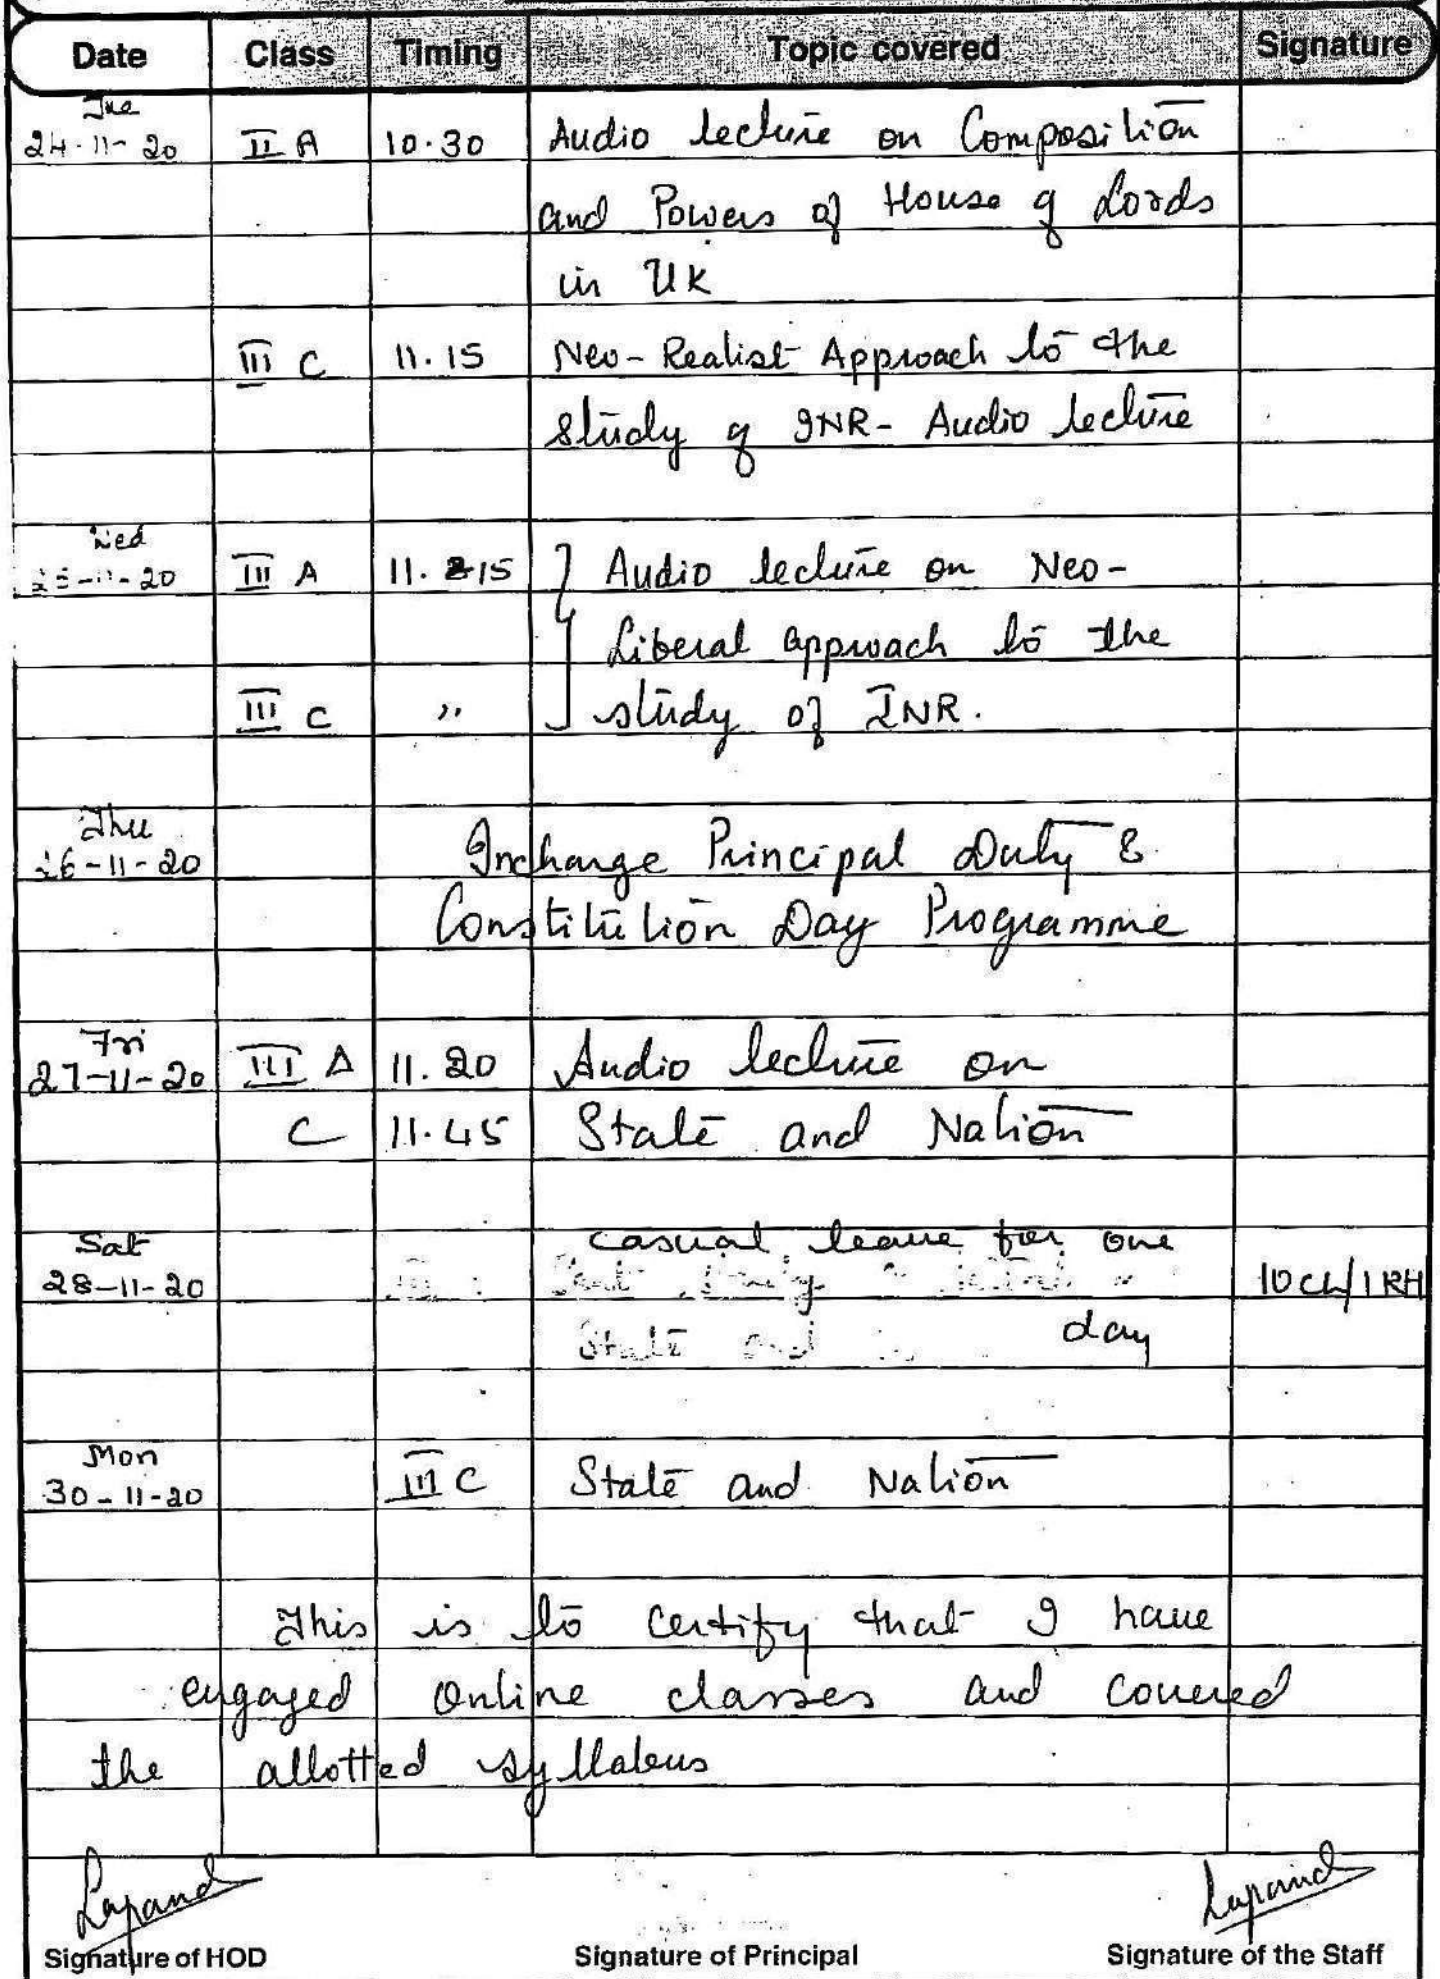 Date Class Timing Topic covered Signature
Tue
24-11-20 II A 10.30 Audio lecture on Composition
and Powers of House of Lords
in UK
III C 11.15 Neo-Realist Approach to the
study of INR- Audio lecture
Wed
25-11-20 III A 11.15 Audio lecture on Neo-
Liberal approach to the
III C ,, study of INR.
Thu
26-11-20 Incharge Principal Duty &
Constitution Day Programme
Fri
27-11-20 III A 11.20 Audio lecture on
C 11.45 State and Nation
Sat casual leave for one
28-11-20 10CL/1RH
State and day
Mon
30-11-20 III C State and Nation
This is to certify that I have
engaged Online classes and covered
the allotted syllabus
Signature of HOD Signature of Principal Signature of the Staff